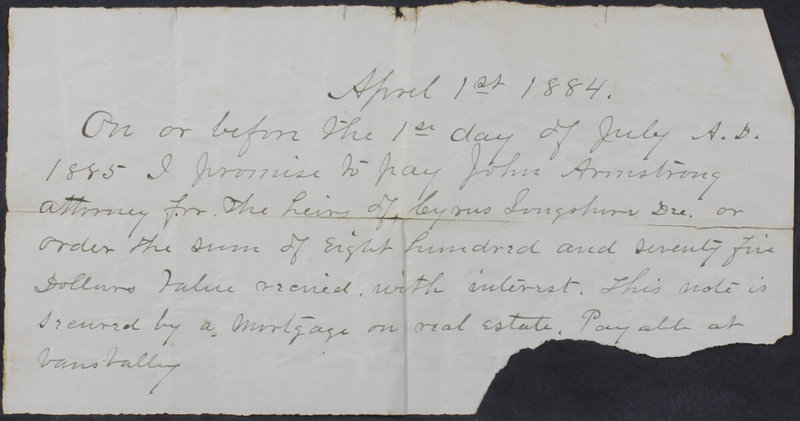 April 1st 1884.
On or before the 1st day of July A.D.
1885 I promise to pay John Armstrong
attorney for the heirs of Cyrus Longshore Dec. or
order the sum of Eight hundred and seventy five
Dollars Value recived, with interest. This note is
secured by a mortgage on real estate. Payable at
Vans Valley